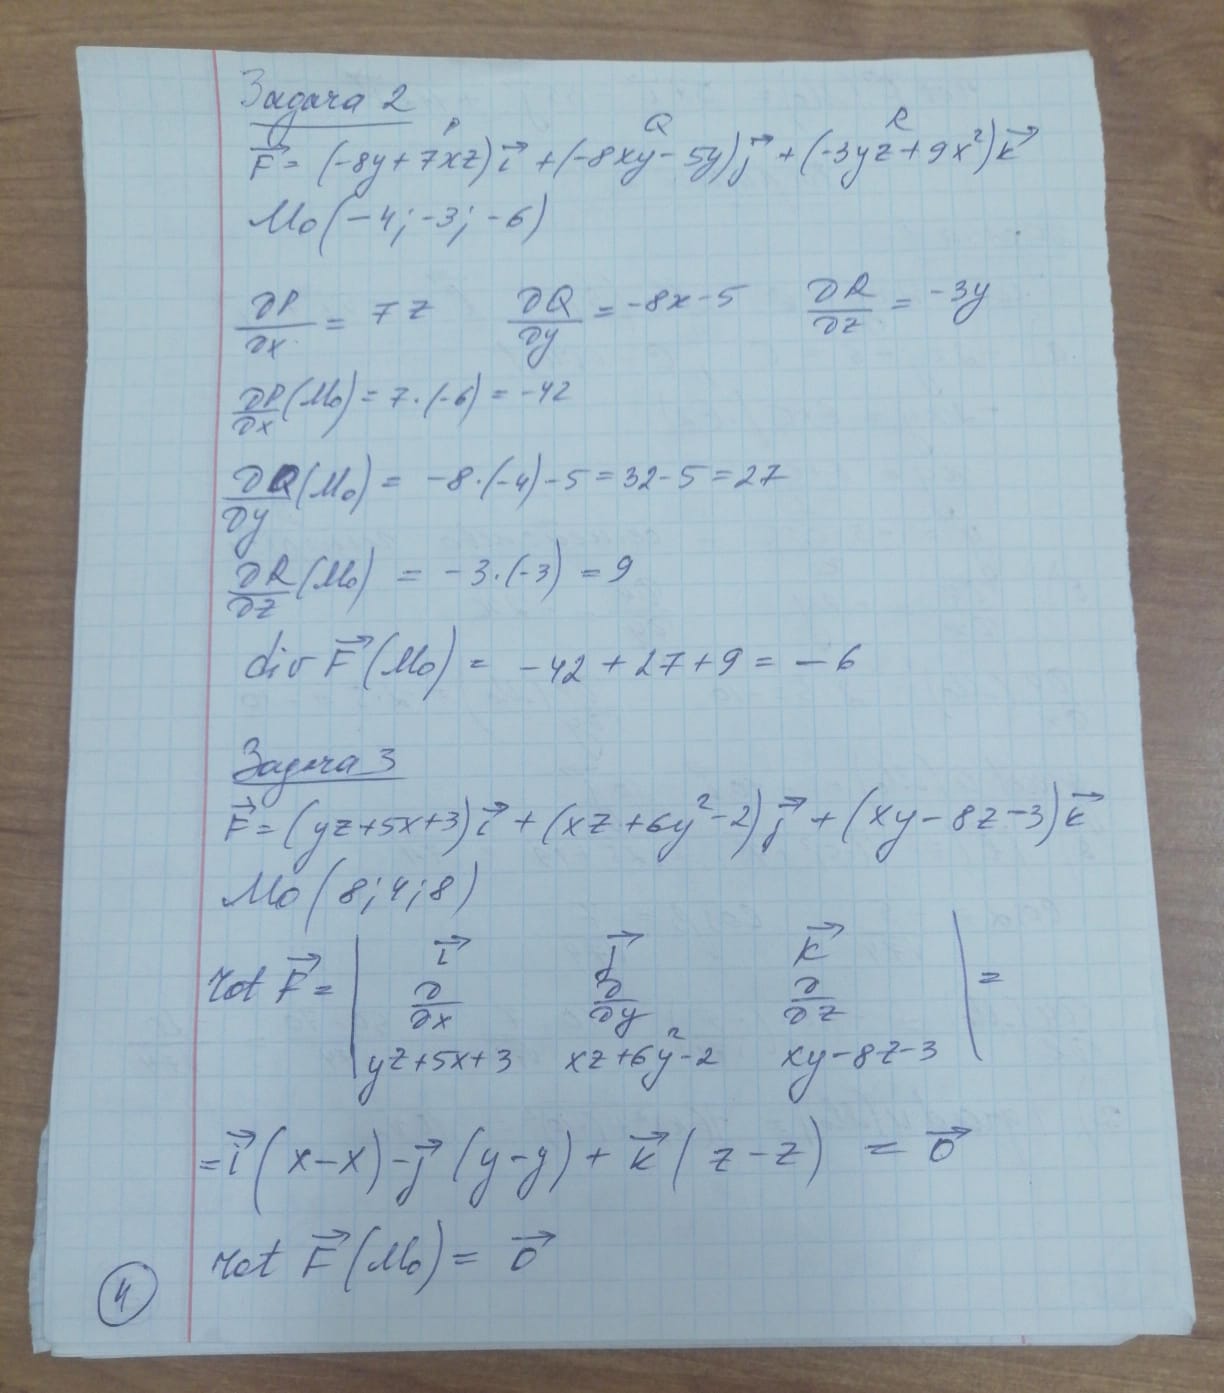 Задача 2
P Q R
F⃗ = (-8y+7xz)i⃗ + (-8xy-5y)j⃗ + (-3yz+9x²)k⃗
M₀(-4;-3;-6)
∂P/∂x = 7z ∂Q/∂y = -8x-5 ∂R/∂z = -3y
∂P/∂x(M₀) = 7·(-6) = -42
∂Q/∂y(M₀) = -8·(-4)-5=32-5=27
∂R/∂z(M₀) = -3·(-3) = 9
div F⃗(M₀) = -42+27+9 = -6
Задача 3
F⃗ = (yz+5x+3)i⃗ + (xz+6y²-2)j⃗ + (xy-8z-3)k⃗
M₀(8;4;8)
rot F⃗ = | i⃗ j⃗ k⃗
∂/∂x ∂/∂y ∂/∂z
yz+5x+3 xz+6y²-2 xy-8z-3 | =
= i⃗(x-x)-j⃗(y-y)+k⃗(z-z) = 0⃗
rot F⃗(M₀) = 0⃗
4